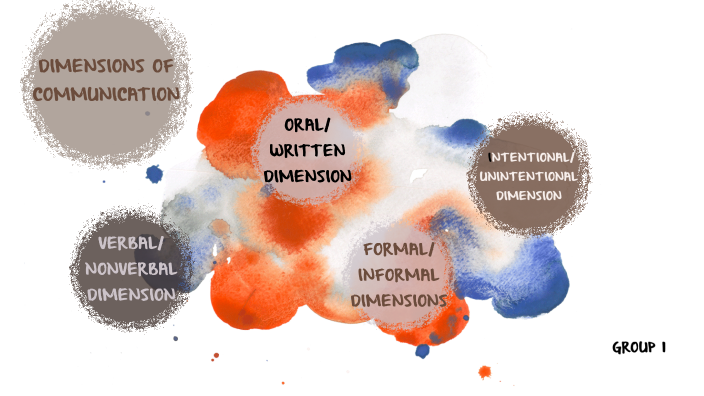 DIMENSIONS OF
COMMUNICATION
ORAL/
WRITTEN
DIMENSION
INTENTIONAL/
UNINTENTIONAL
DIMENSION
VERBAL/
NONVERBAL
DIMENSION
FORMAL/
INFORMAL
DIMENSIONS
GROUP 1